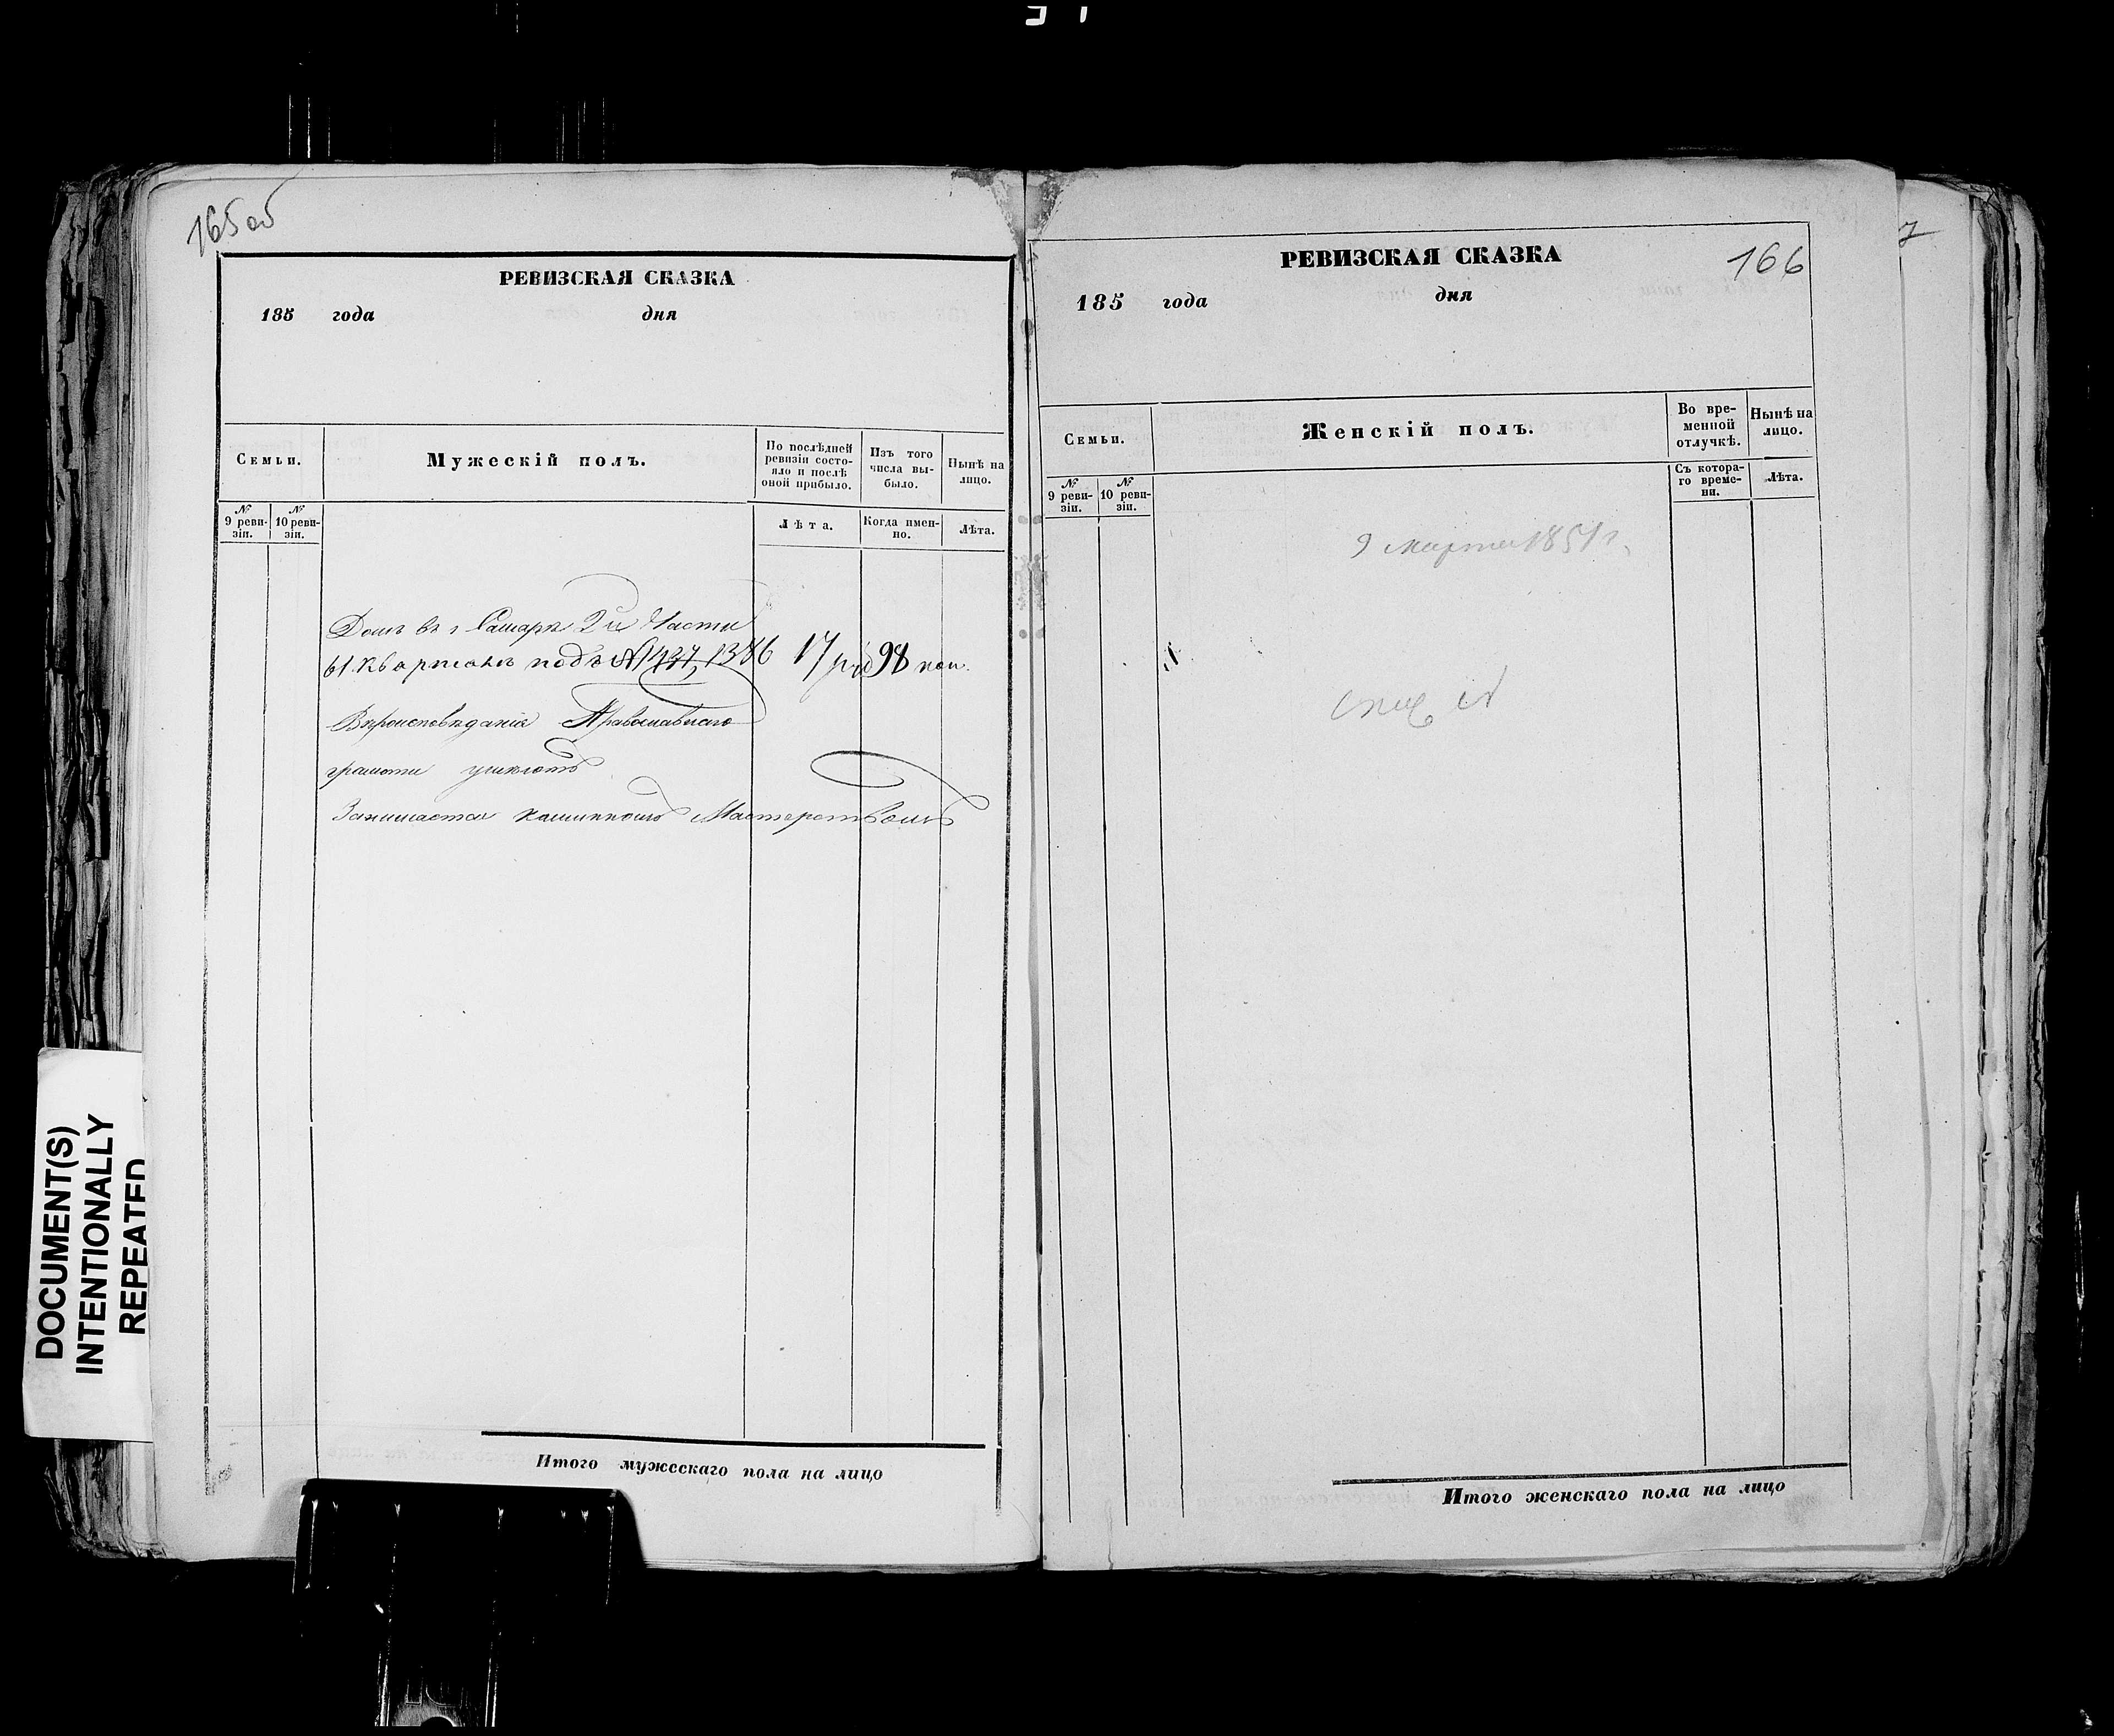 165 об
РЕВИЗСКАЯ СКАЗКА
185 года дня
Семьи.
Мужескій полъ.
По послѣдней ревизіи состо-
яло и послѣ оной прибыло.
Изъ того числа вы-
было.
Нынѣ на лицо.
№ 9 реви-
зіи.
№ 10 реви-
зіи.
Лѣта.
Когда имен-
но.
Лѣта.
Домъ въ г Самарѣ 2й Части
61. Кварталѣ подъ № 437, 1386 17 руб 98 коп.
Вѣроисповѣданія Православнаго
грамоти умѣютъ
Занимается Мастерствомъ
Итого мужескаго пола на лицо
166
РЕВИЗСКАЯ СКАЗКА
185 года дня
Семьи.
Женскій полъ.
Во вре-
менной
отлучкѣ.
Нынѣ на
лицо.
№ 9 реви-
зіи.
№ 10 реви-
зіи.
Съ котора-
го време-
ни.
Лѣта.
9 марта
Итого женскаго пола на лицо
7
DOCUMENT(S)
INTENTIONALLY
REPEATED